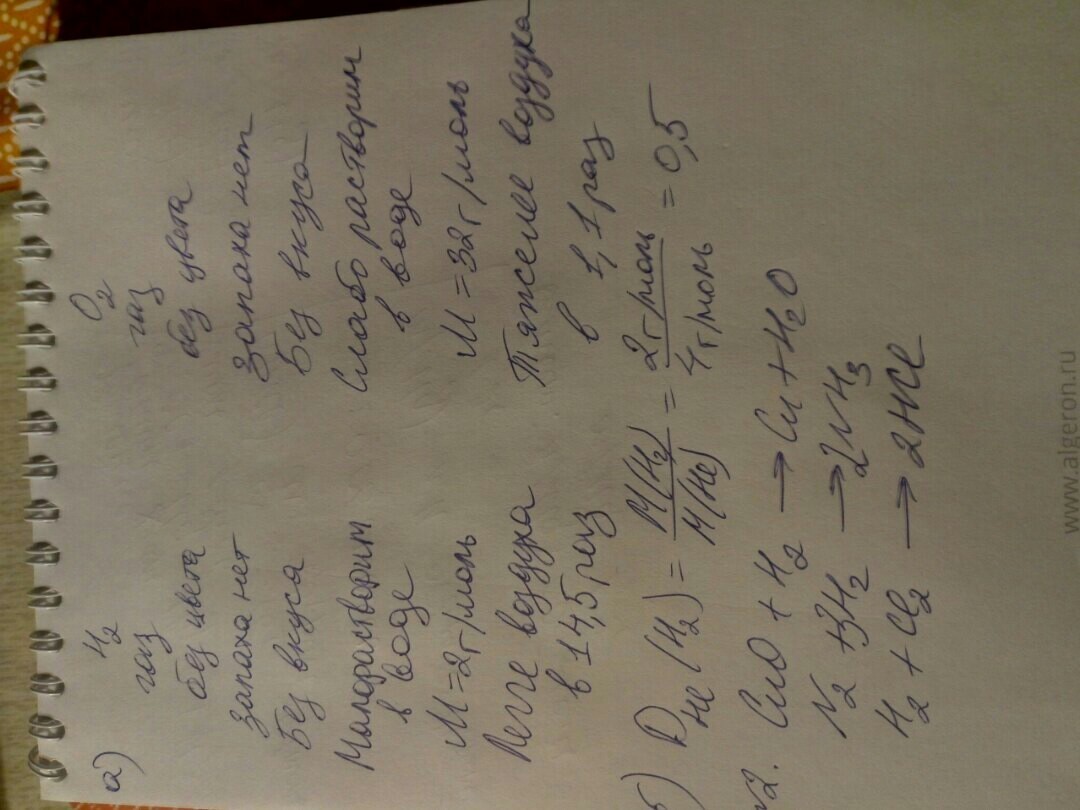 а)
H2
газ
без цвета
запаха нет
Без вкуса
Малорастворим
в воде
M = 2г/моль
Легче воздуха
в 14,5 раз
O2
газ
без цвета
запаха нет
Без вкуса
Слабо растворим
в воде
M = 32г/моль
Тяжелее воздуха
в 1,1 раз
б) DHe (H2) = M(H2)/M(He) = 2г/моль/4г/моль = 0,5
№2. CuO + H2 → Cu + H2O
N2 + 3H2 → 2NH3
H2 + Cl2 → 2HCl
www.algeron.ru